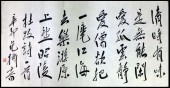 清時有味
是無能閑
愛孤雲靜
愛僧欲把
一麾江海
去樂游原
上望昭陵
杜牧詩一首